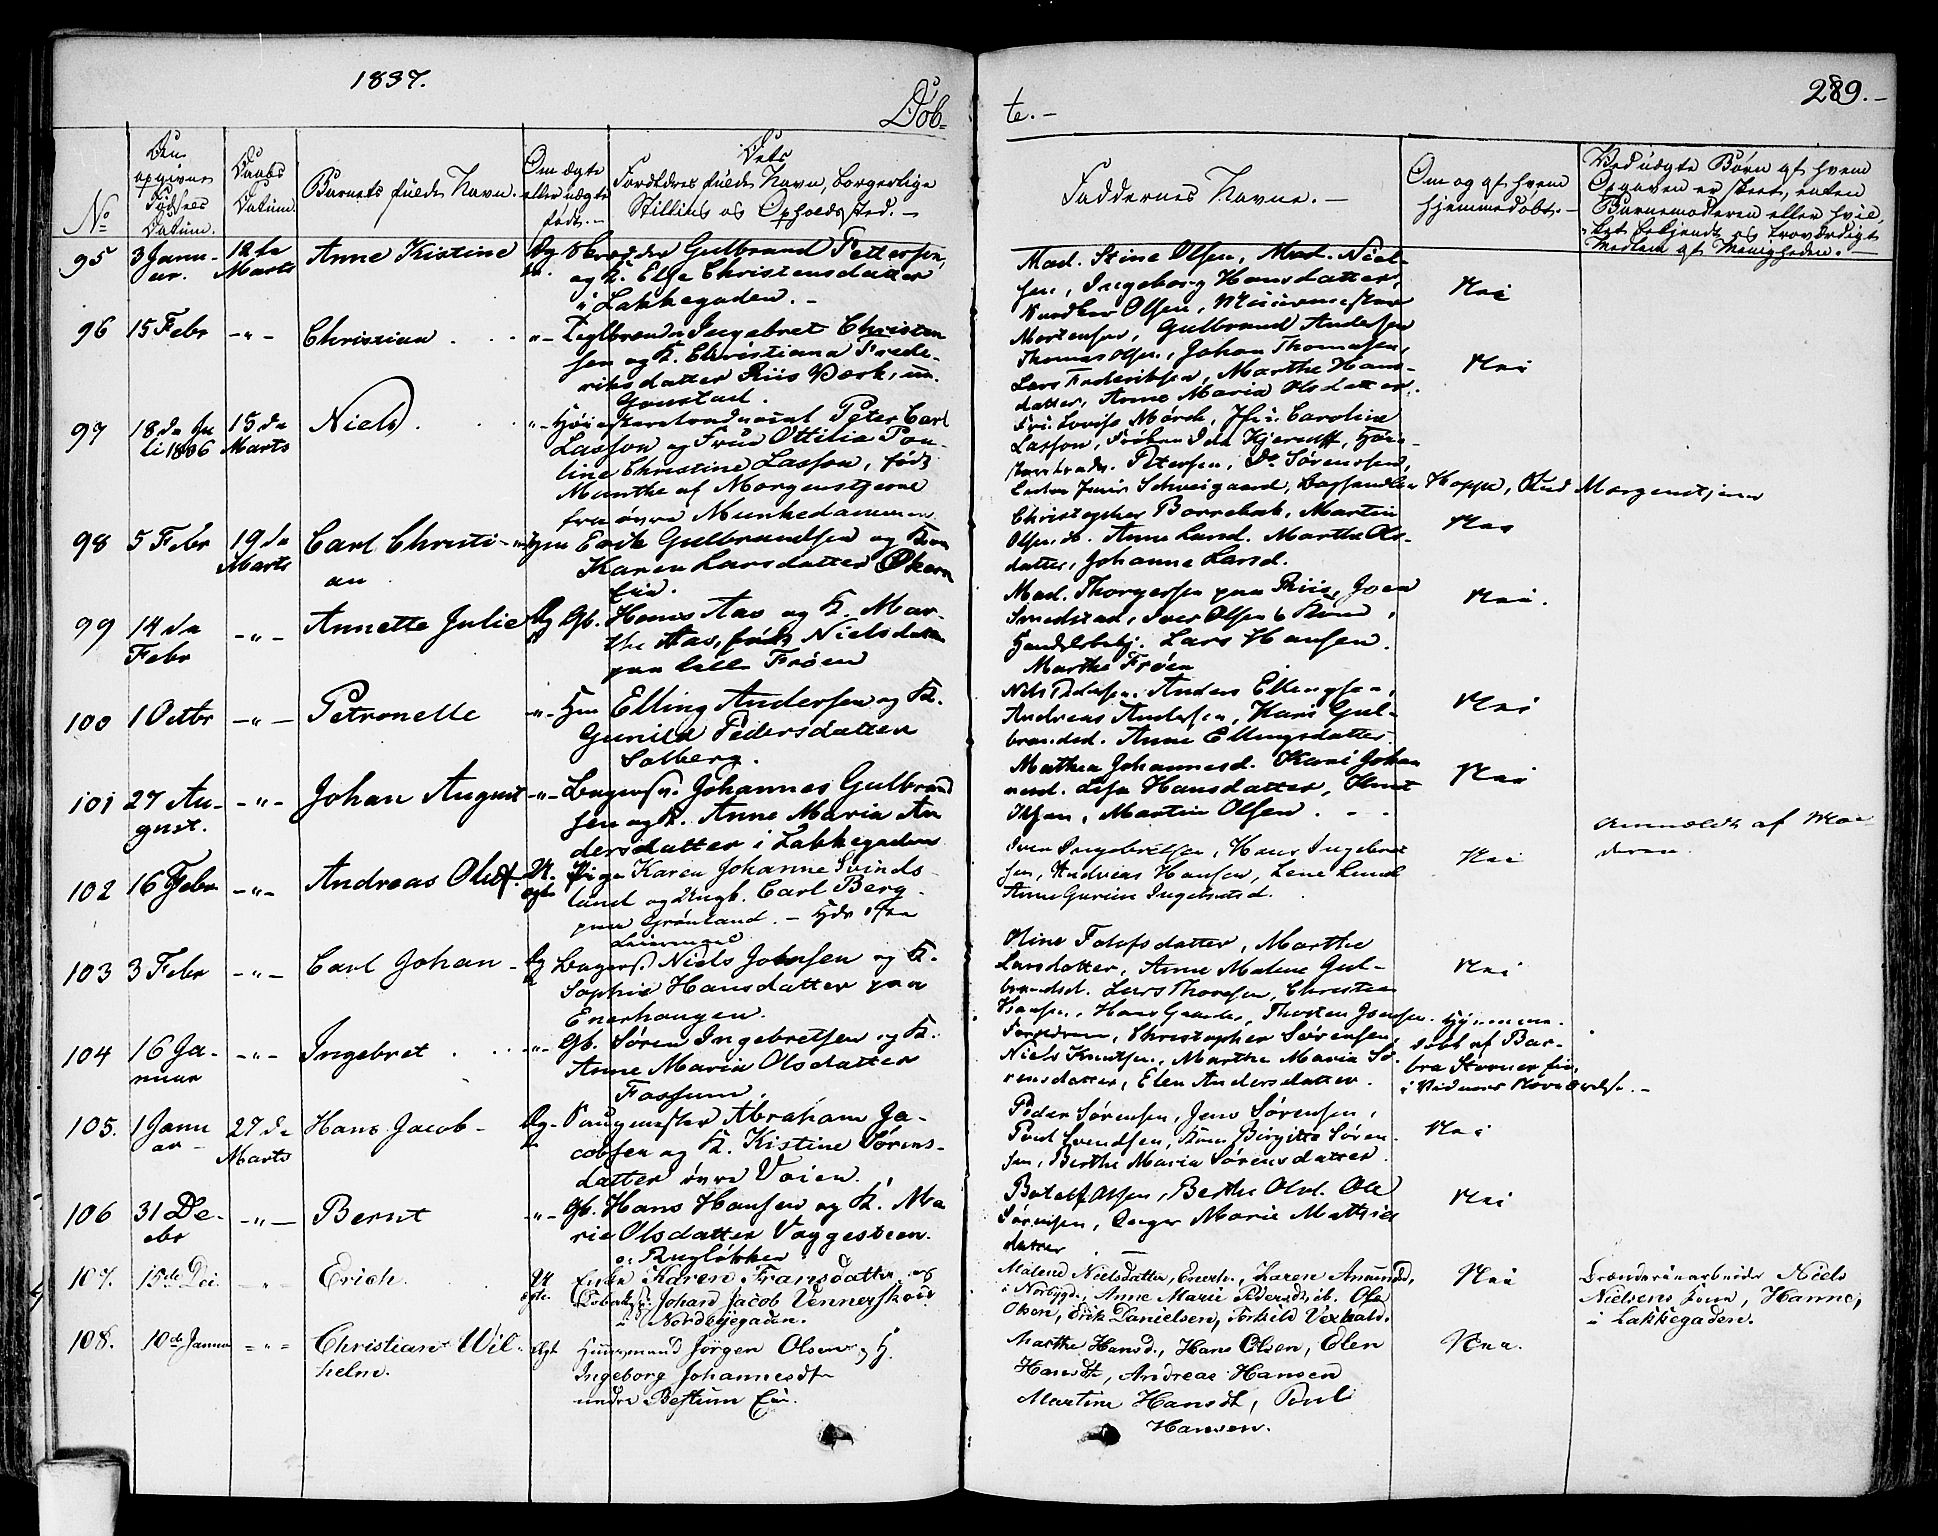 1837.
Döb-
te. -
289. -
No
Den opgivne Fødsels Datum.
Daabs Datum.
Barnets fulde Navn.
Om ægte eller uægte født. -
Dets Forældres fulde Navn, borgerlige Stilling og Opholdssted. -
Faddernes Navne. -
Om og af hvem hjemmedøbt. -
Ved uægte Børn af hvem
Opgaven er skeet, enten
Barnemoderen eller hvil-
ket bekjendt og troværdigt
Medlem af Menigheden. -
95 3 Janu-
ar. 12 te
Marts Anne Kistine Gulbrand Pettersen,
og K. Else Christensdatter
i Lakkegaden. -
Mad. Stine Olsen, Mad. Niel-
sen, Ingeborg Hansdatter,
Olsen, Muurmester
Mortensen, Gulbrand Andersen
Nei
96 15 Febr -"- Christian . . -"- Teglbrender Ingebret Christen
sen og K. Christiana Frede-
riksdatter Riis Værk, un.
Gaustad.
Thomas Olsen, Johan Thomasen,
Lars Frederiksen, Marthe Hans-
datter, Anne Maria Olsdatter.
Nei
97 18 de Ju
li 1836 15 de
Marts Niels. . -"- Høiesteretsadvocat Peter Carl
Lasson og Frue Ottilia Pou-
line Christine Lasson, født
Munthe af Morgenstjerne
fra øvre Munkedammen
Fru Lovise Mørch, Caroline
Lasson, Frøken Ida Kjerulff, Høie-
Petersen, Do Sørenssen,
Schweigaard, Hoppe, Morgenstjerne
98 5 Febr 19 de
Marts Carl Christi-
an -"- Hm Erik Gulbrandsen og Kone
Karen Larsdatter Økern
Eie.
Christopher Borrebæk, Martin
Olsen ib. Anne Larsd. Marthe Ols-
datter, Johanne Larsd.
Nei
99 14 de
Febr -"- Annette Julie Æg Gb. Hans Aas og K. Mar-
the Aas, født Nielsdatter
paa lille Frøen
Mad. Thorgersen paa Riis, Joen
Smedstad, Iver Olsen Kone,
Lars Hansen.
Marthe Frøen
Nei.
100 1 Octbr -"- Petronelle -"- Hm Elling Andersen og K.
Gunild Pedersdatter
Solberg.
Nils Pedersen, Anders Ellingsen,
Andreas Andersen, Kari Gul-
brandsd. Anne Ellingsdatter
Nei
101 27 Au-
gust. -"- Johan August -"- Johannes Gulbrand
sen og K. Anne Maria An
dersdatter i Lakkegaden
Mathea Johannesd. Kari Johan
nesd. Lisa Hansdatter,
Martin Olsen . - -
Nei
102 16 Febr -"- Andreas Oluf U.
ægte Pige Karen Johanne Svinds-
lund og Ungk. Carl Berg
paa Grønland. -
Iver Ingebretsen, Hans Ingebret
sen, Andreas Hansen, Lene Lund
Anne Gurine
Nei
Anmeldt af Mo-
deren.
103 3 Febr -"- Carl Johan - Æg Niels Johnsen og K.
Sophie Hansdatter paa
Enerhaugen.
Oline Tolofsdatter, Marthe
Larsdatter, Anne Malene Gul-
brandsd. Lars Thoresen, Christen
Hansen, Thorsten
Nei
104 16 Ja-
nuar -"- Ingebret . . -"- Gb. Søren Ingebretsen og K.
Anne Maria Olsdatter
Fossum.
Christopher Sørensen,
Niels Knutsen, Marthe Maria Sø-
rensdatter, Elen Andersdatter.
Hjemme-
døbt af Bar-
bra
105. 1 Janu
ar - 27 de
Marts Hans Jacob - Æg- Abraham Ja-
cobsen og K. Kistine Sørens-
datter øvre Voien.
Peder Sørensen, Jens Sørensen,
Poul Svendsen, Kone Birgitte Søren-
sen, Berthe Maria Sørensdatter.
Nei
106 31 De-
cbr -"- Bernt -"- Gb. Hans Hansen og K. Ma
rie Olsdatter Vaggesteen
Rugløkken
Botolf Olsen, Berthe Olsd. Ole
Sørensen, Marie Mathis
datter
Nei
107. 15de Dei. -"- Erich. U
ægte. Enke Karen Fransdatter og
Johan Jacob Vennerskou
i Nordbyegaden.
Malene Nielsdatter, Enerh., Karen Amunds,
i Norbygd., Anne Marie Pedersd. ib. Ole
Olsen, Erik Danielsen, Torkild Vexhald.
Nei
Brænderiearbeider Niels
Nielsens Kone, Hanne,
i Lakkegaden.
108. 10de Januar -"- Christian Wil-
helm. Ægt Huusmand Jørgen Olsen og H.
Ingeborg Johannesdt
under Bestum Eie.
Marthe Hansd., Hans Olsen, Elen
Hansdt, Andreas Hansen
Martine Hansdt, Poul
Hansen.
Nei.